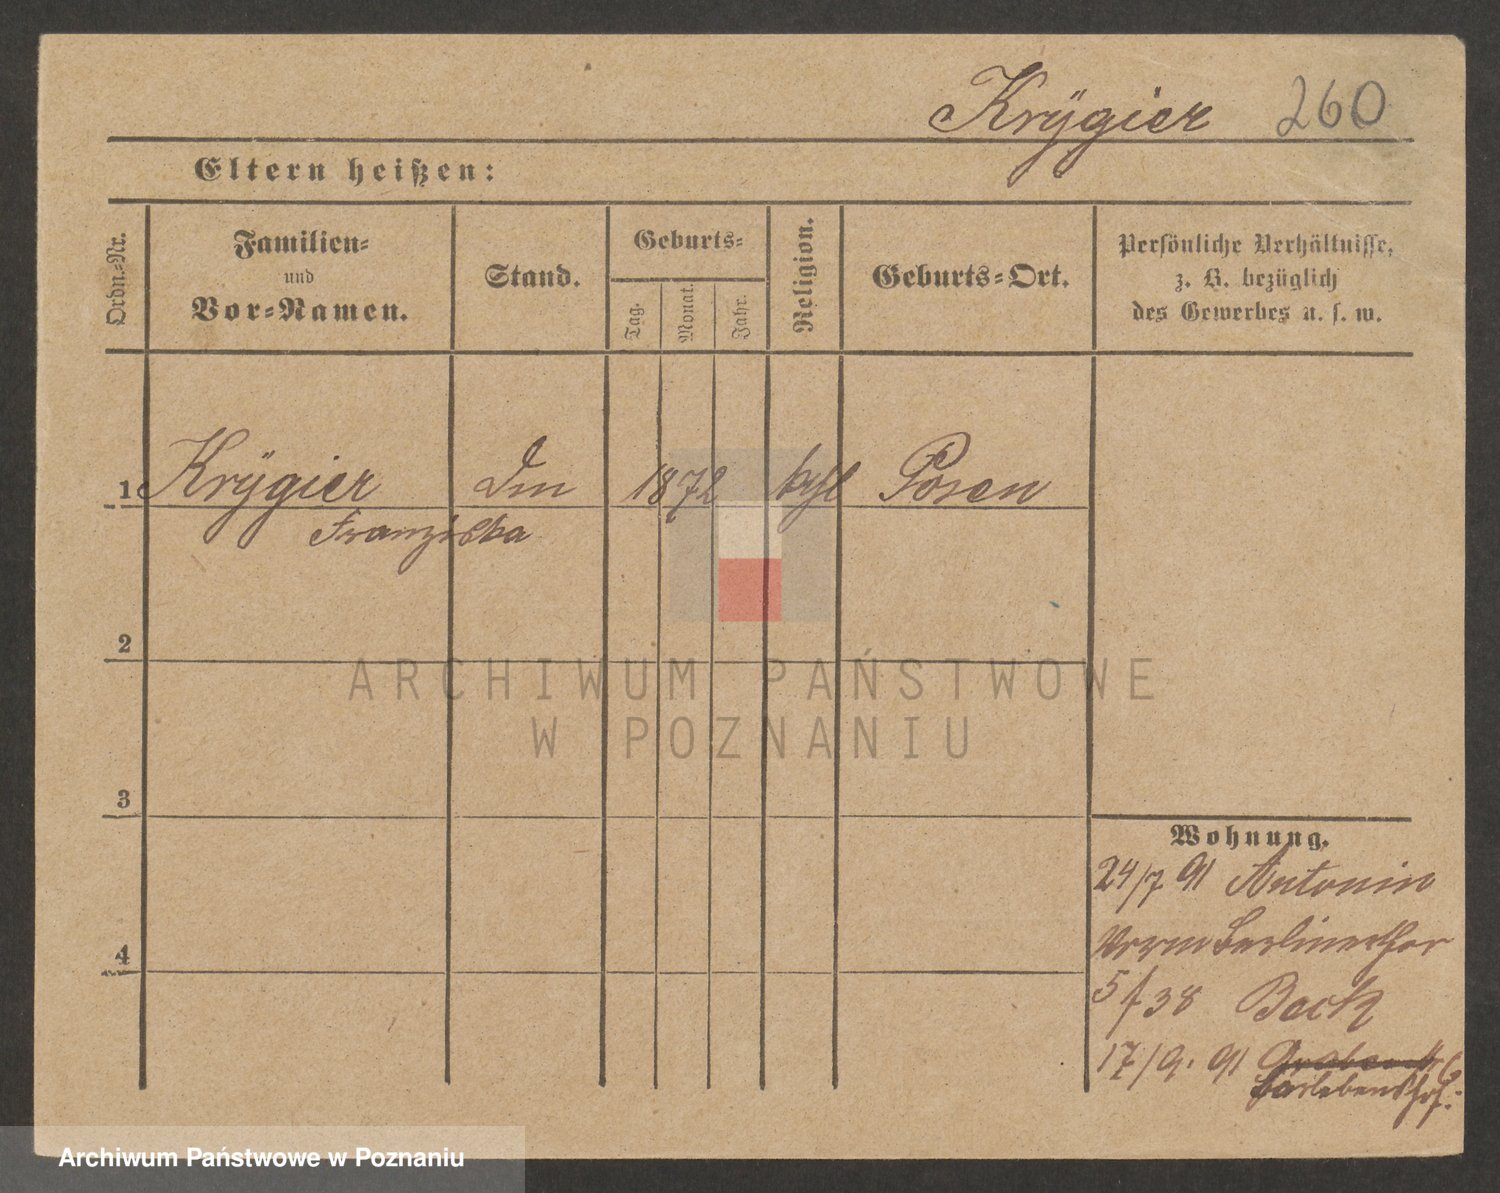 Krÿgier 260
Eltern heißen:
Ordn.-Nr.
Familien-
und
Vor-Namen.
Stand.
Geburts-
Tag.
Monat.
Jahr.
Religion.
Geburts-Ort.
Persönliche Verhältnisse,
z. B. bezüglich
des Gewerbes u. s. w.
1 Krÿgier 1872 Posen
Franziska
2
ARCHIWUM PAŃSTWOWE
W POZNANIU
3
4
Wohnung.
24/7 91 Antonin
Berlinerthor
5/38 Back
17/9. 91
Archiwum Państwowe w Poznaniu